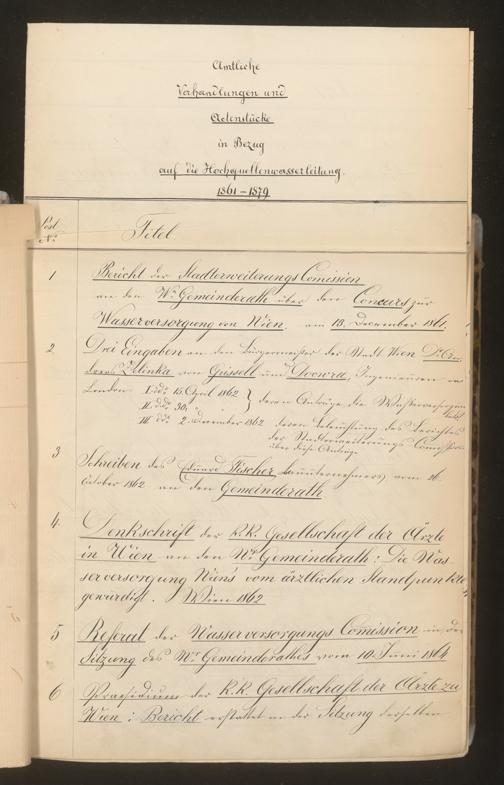 Amtliche
Verhandlungen und
Actenstücke
in Bezug
auf die Hochquellenwasserleitung.
1861–1879
Post
No
Titel
1
Bericht der Stadterweiterungs Comission
an den Wr Gemeinderath über den Concurs zur
Wasserversorgung von Wien am 13. December 1861.
2
Drei Eingaben an den Bürgermeister der Stadt Wien Dr An-
dreas Zelinka von Grissell und Ingenieuren in
London I. ddo 15. April 1862
II. ddo 30.
III ddo 2. December 1862
deren Anträge, die Wasserversorgung
deren Beleuchtung des Berichtes
der Stadterweiterungs Comission
über diese Anträge
3
Schreiben des Eduard Fischer, Bauunternehmers vom 26.
October 1862 an den Gemeinderath
4.
Denkschrift der k.k. Gesellschaft der Ärzte
in Wien an den Wr Gemeinderath: Die Was-
serversorgung Wien's vom ärztlichen Standpunkte
gewürdigt. Wien 1862
5
Referat der Wasserversorgungs Comission in der
Sitzung des Wr Gemeinderathes vom 10. Juni 1864
6
Praesidium der k.k. Gesellschaft der Ärzte zu
Wien: Bericht erstattet in der Sitzung derselben